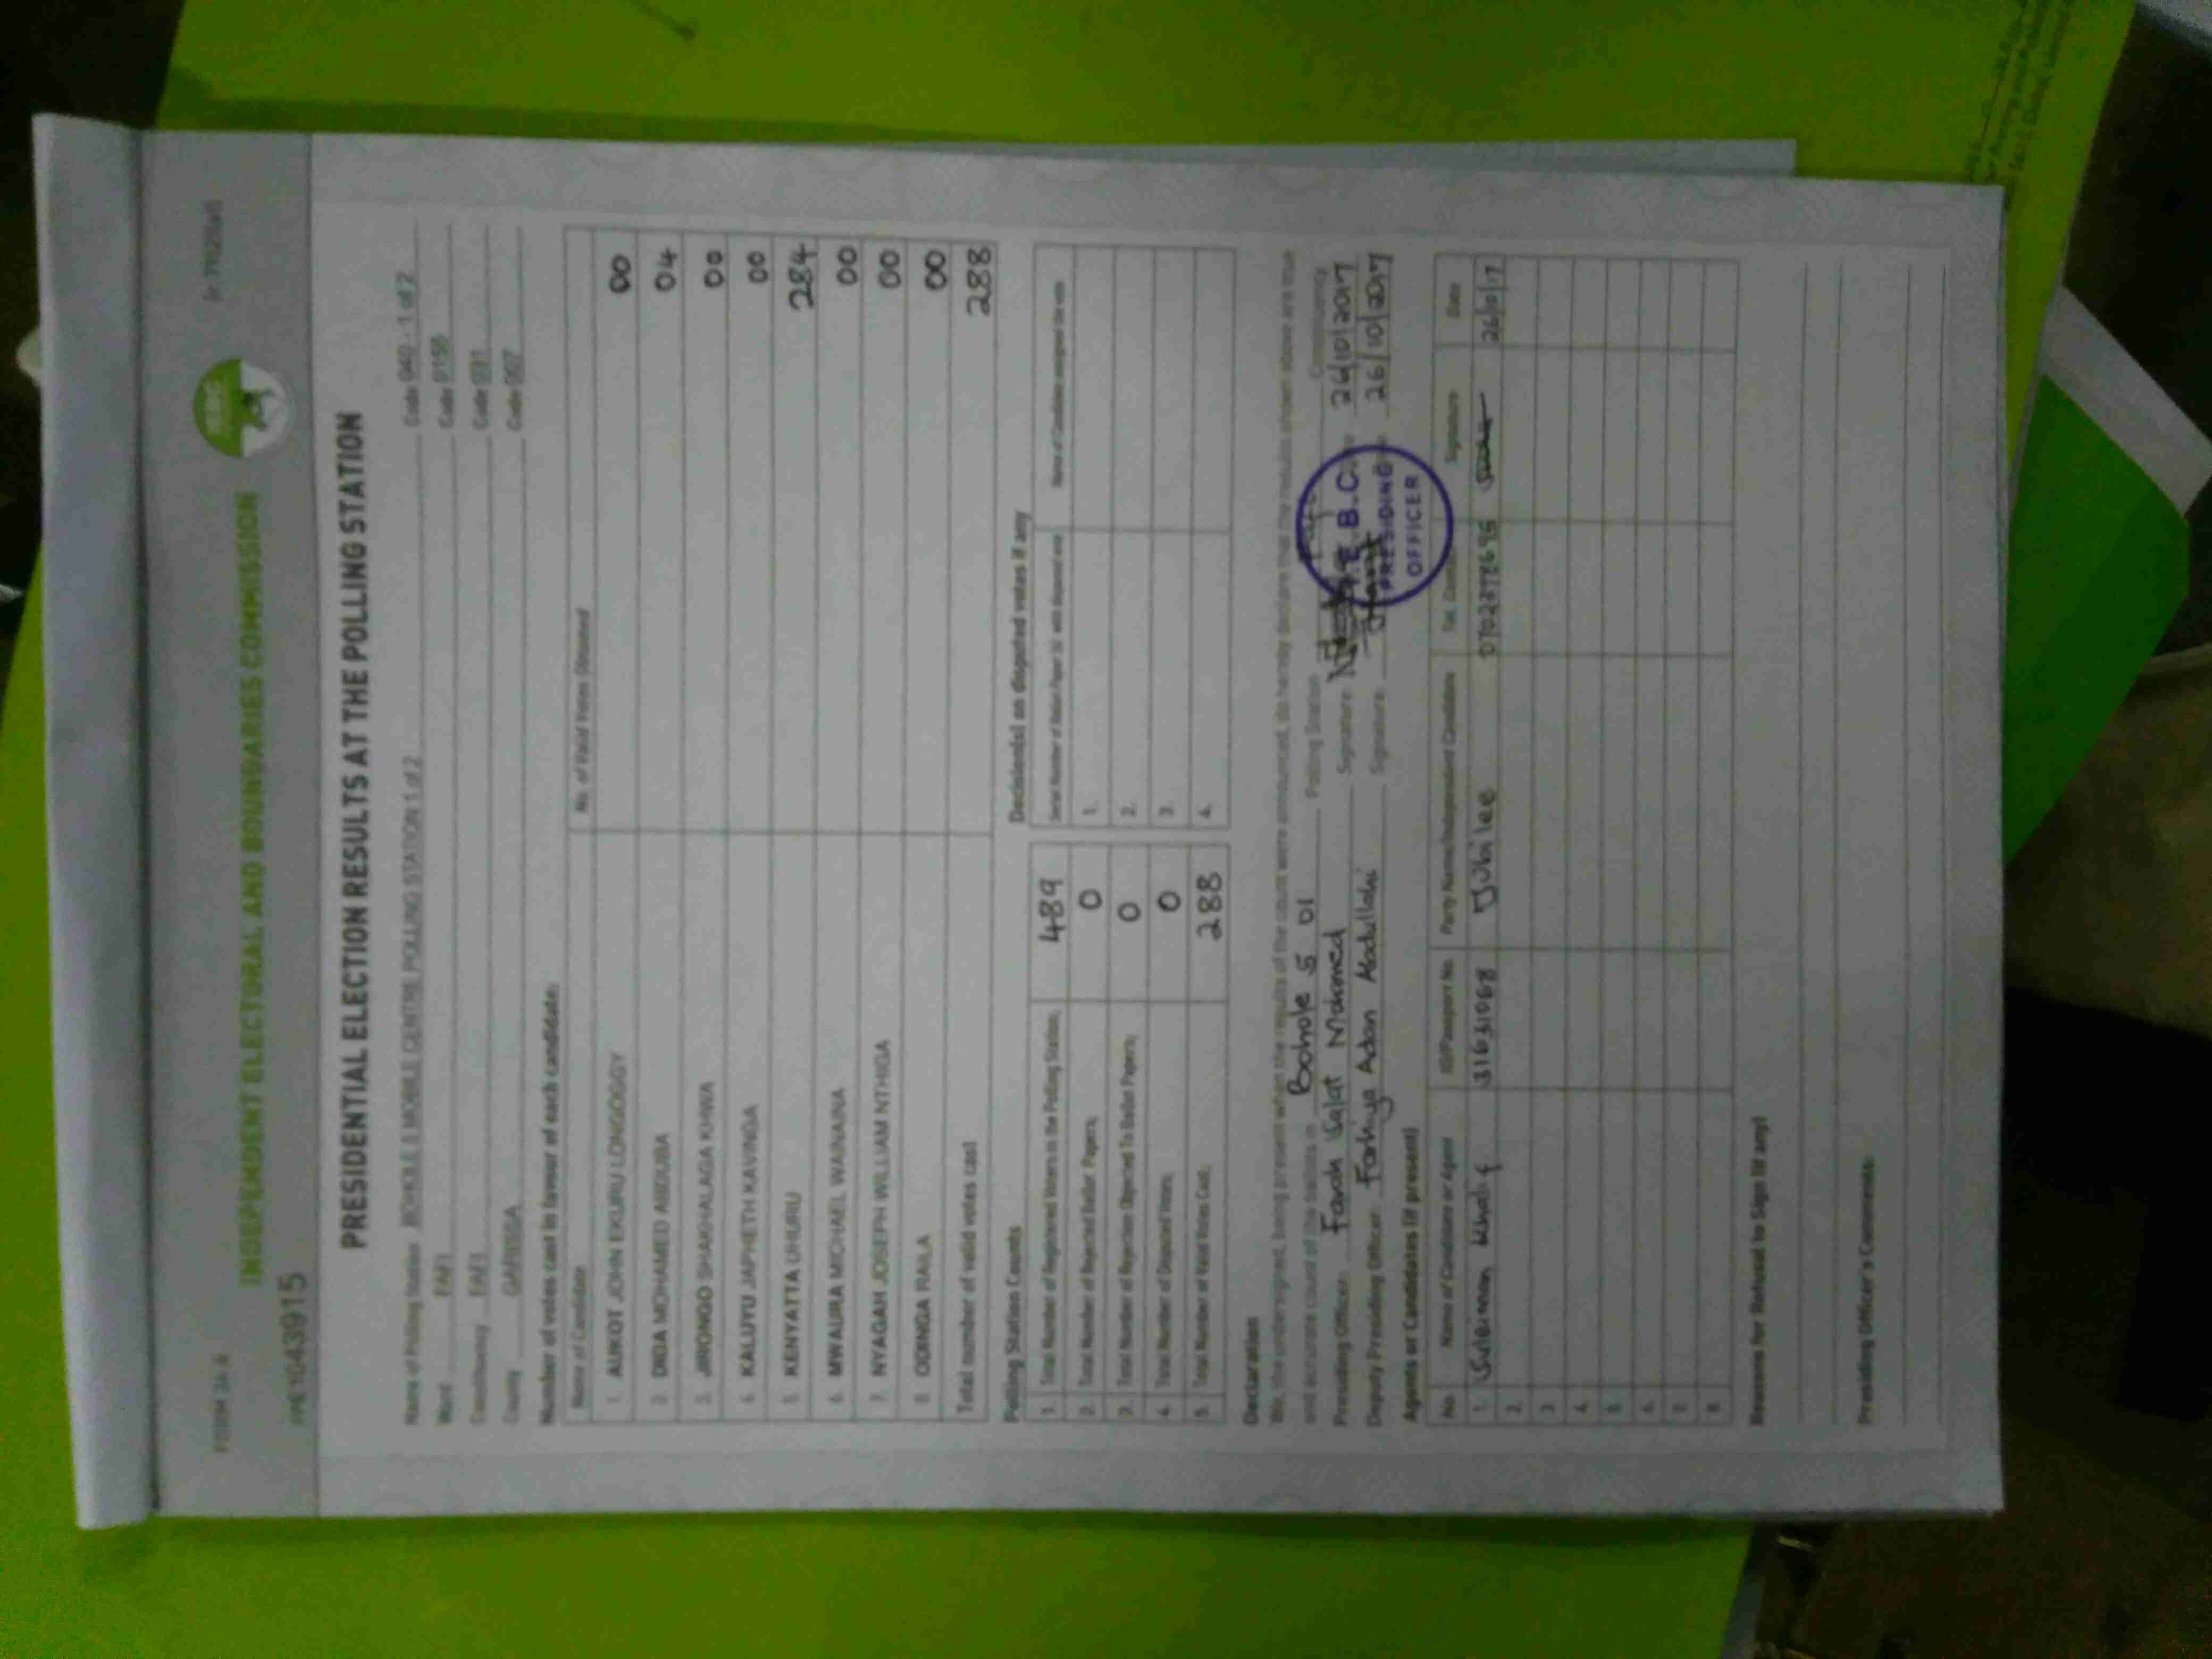 FORM 34A
INDEPENDENT ELECTORAL AND BOUNDARIES COMMISSION
IEBC
PRESIDENTIAL ELECTION RESULTS AT THE POLLING STATION
Name of Polling Station BOHOLE 5 MOBILE CENTRE POLLING STATION 1 of 2 Code 040 - 1 of 2
Ward FAFI Code 0156
Constituency FAFI Code 031
County GARISSA Code 007
Number of votes cast in favour of each candidate:
Name of Candidate No. of Valid Votes Obtained
1. AUKOT JOHN EKURU LONGOGGY 00
2. DIDA MOHAMED ABDUBA 04
3. JIRONGO SHAKHALAGA KHWA 00
4. KALUYU JAPHETH KAVINGA 00
5. KENYATTA UHURU 284
6. MWAURA MICHAEL WAINAINA 00
7. NYAGAH JOSEPH WILLIAM NTHIGA 00
8. ODINGA RAILA 00
Total number of valid votes cast 288
Polling Station Counts
1. Total Number of Registered Voters in the Polling Station; 489
2. Total Number of Rejected Ballot Papers; 0
3. Total Number of Rejection Objected To Ballot Papers; 0
4. Total Number of Disputed Votes; 0
5. Total Number of Valid Votes Cast; 288
Decision(s) on disputed votes if any
1.
2.
3.
4.
Declaration
We, the undersigned, being present when the results of the count were announced, do hereby declare that the results shown above are true
and accurate count of the ballots in Bohole 5 01 Polling Station Constituency
Presiding Officer: Farah Salat Mohamed Signature 26/10/2017
Deputy Presiding Officer: Farhiya Adan Abdullahi Signature 26/10/2017
I.E.B.C.
PRESIDING
OFFICER
Agents or Candidates (if present)
No. Name of Candidate or Agent ID/Passport No. Party Name/Independent Candidate Tel. Signature Date
1. Suleiman Khalif 31631068 Jubilee 26/10/17
2.
3.
4.
5.
6.
7.
8.
Reasons for Refusal to Sign (if any)
Presiding Officer's Comments: